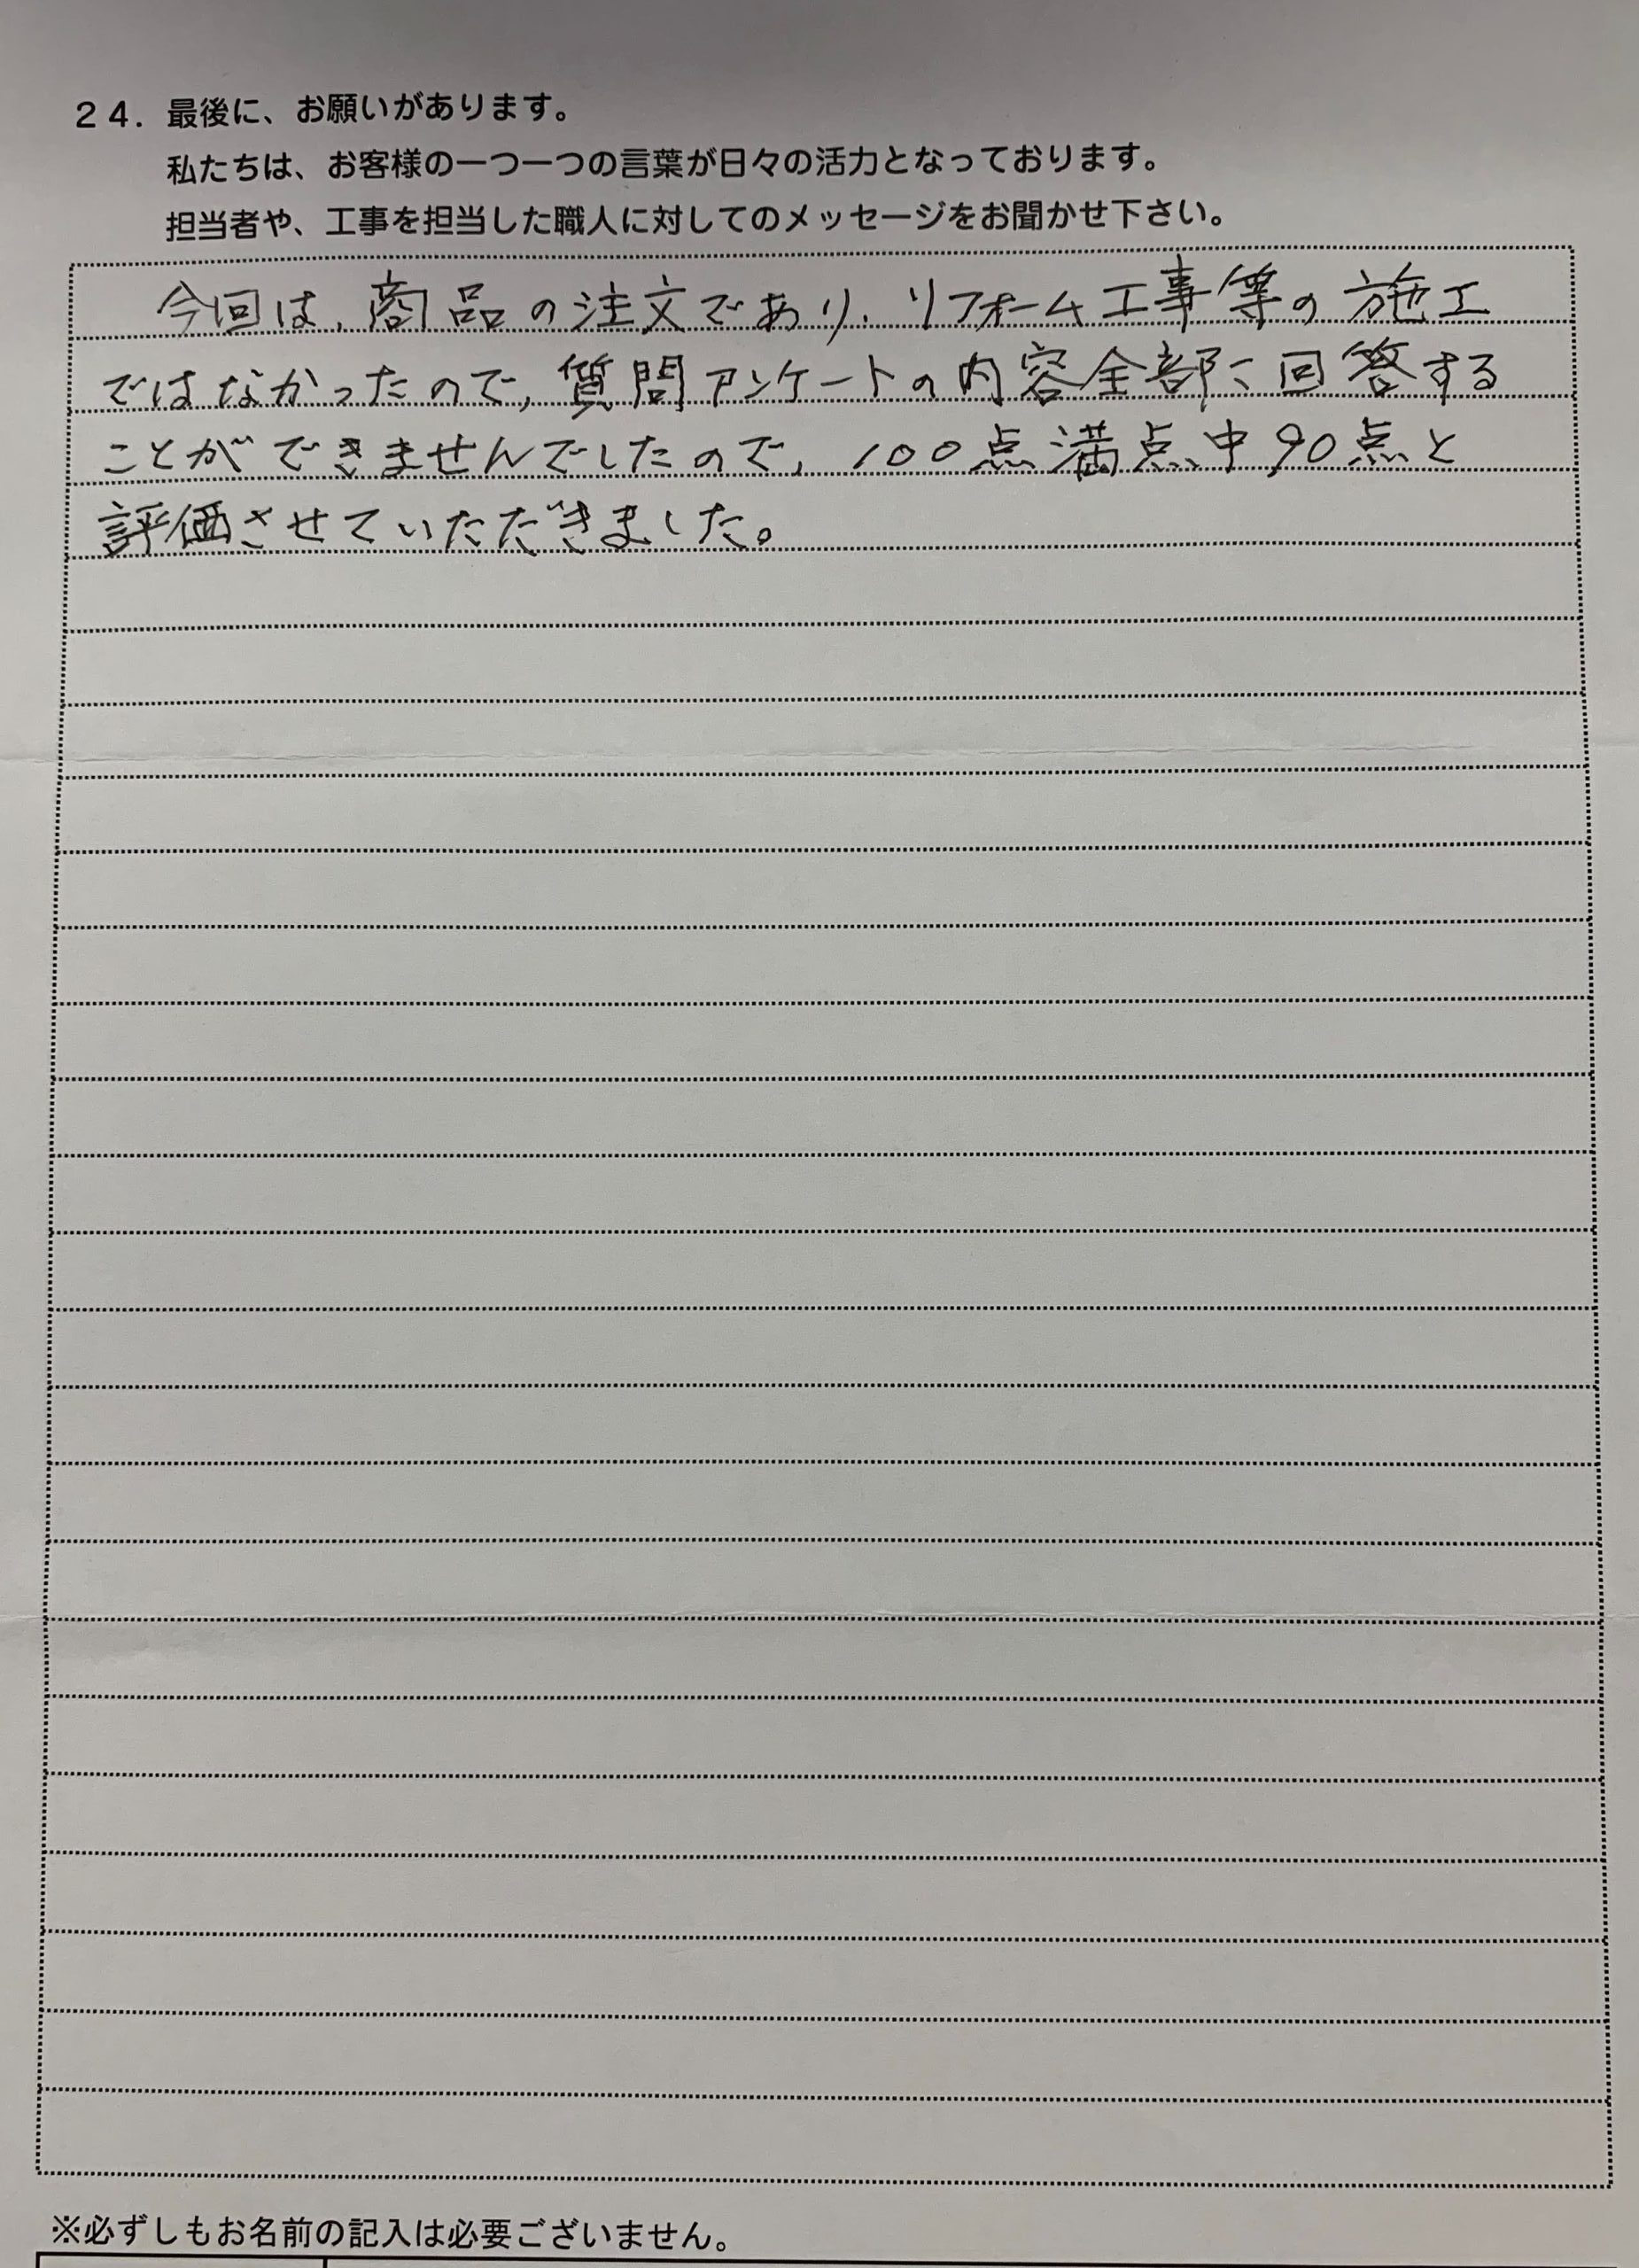 24. 最後に、お願いがあります。
私たちは、お客様の一つ一つの言葉が日々の活力となっております。
担当者や、工事を担当した職人に対してのメッセージをお聞かせ下さい。
今回は、商品の注文であり、リフォーム工事等の施工
ではなかったので、質問アンケートの内容全部に回答する
ことができませんでしたので、100点満点中90点と
評価させていただきました。
※必ずしもお名前の記入は必要ございません。